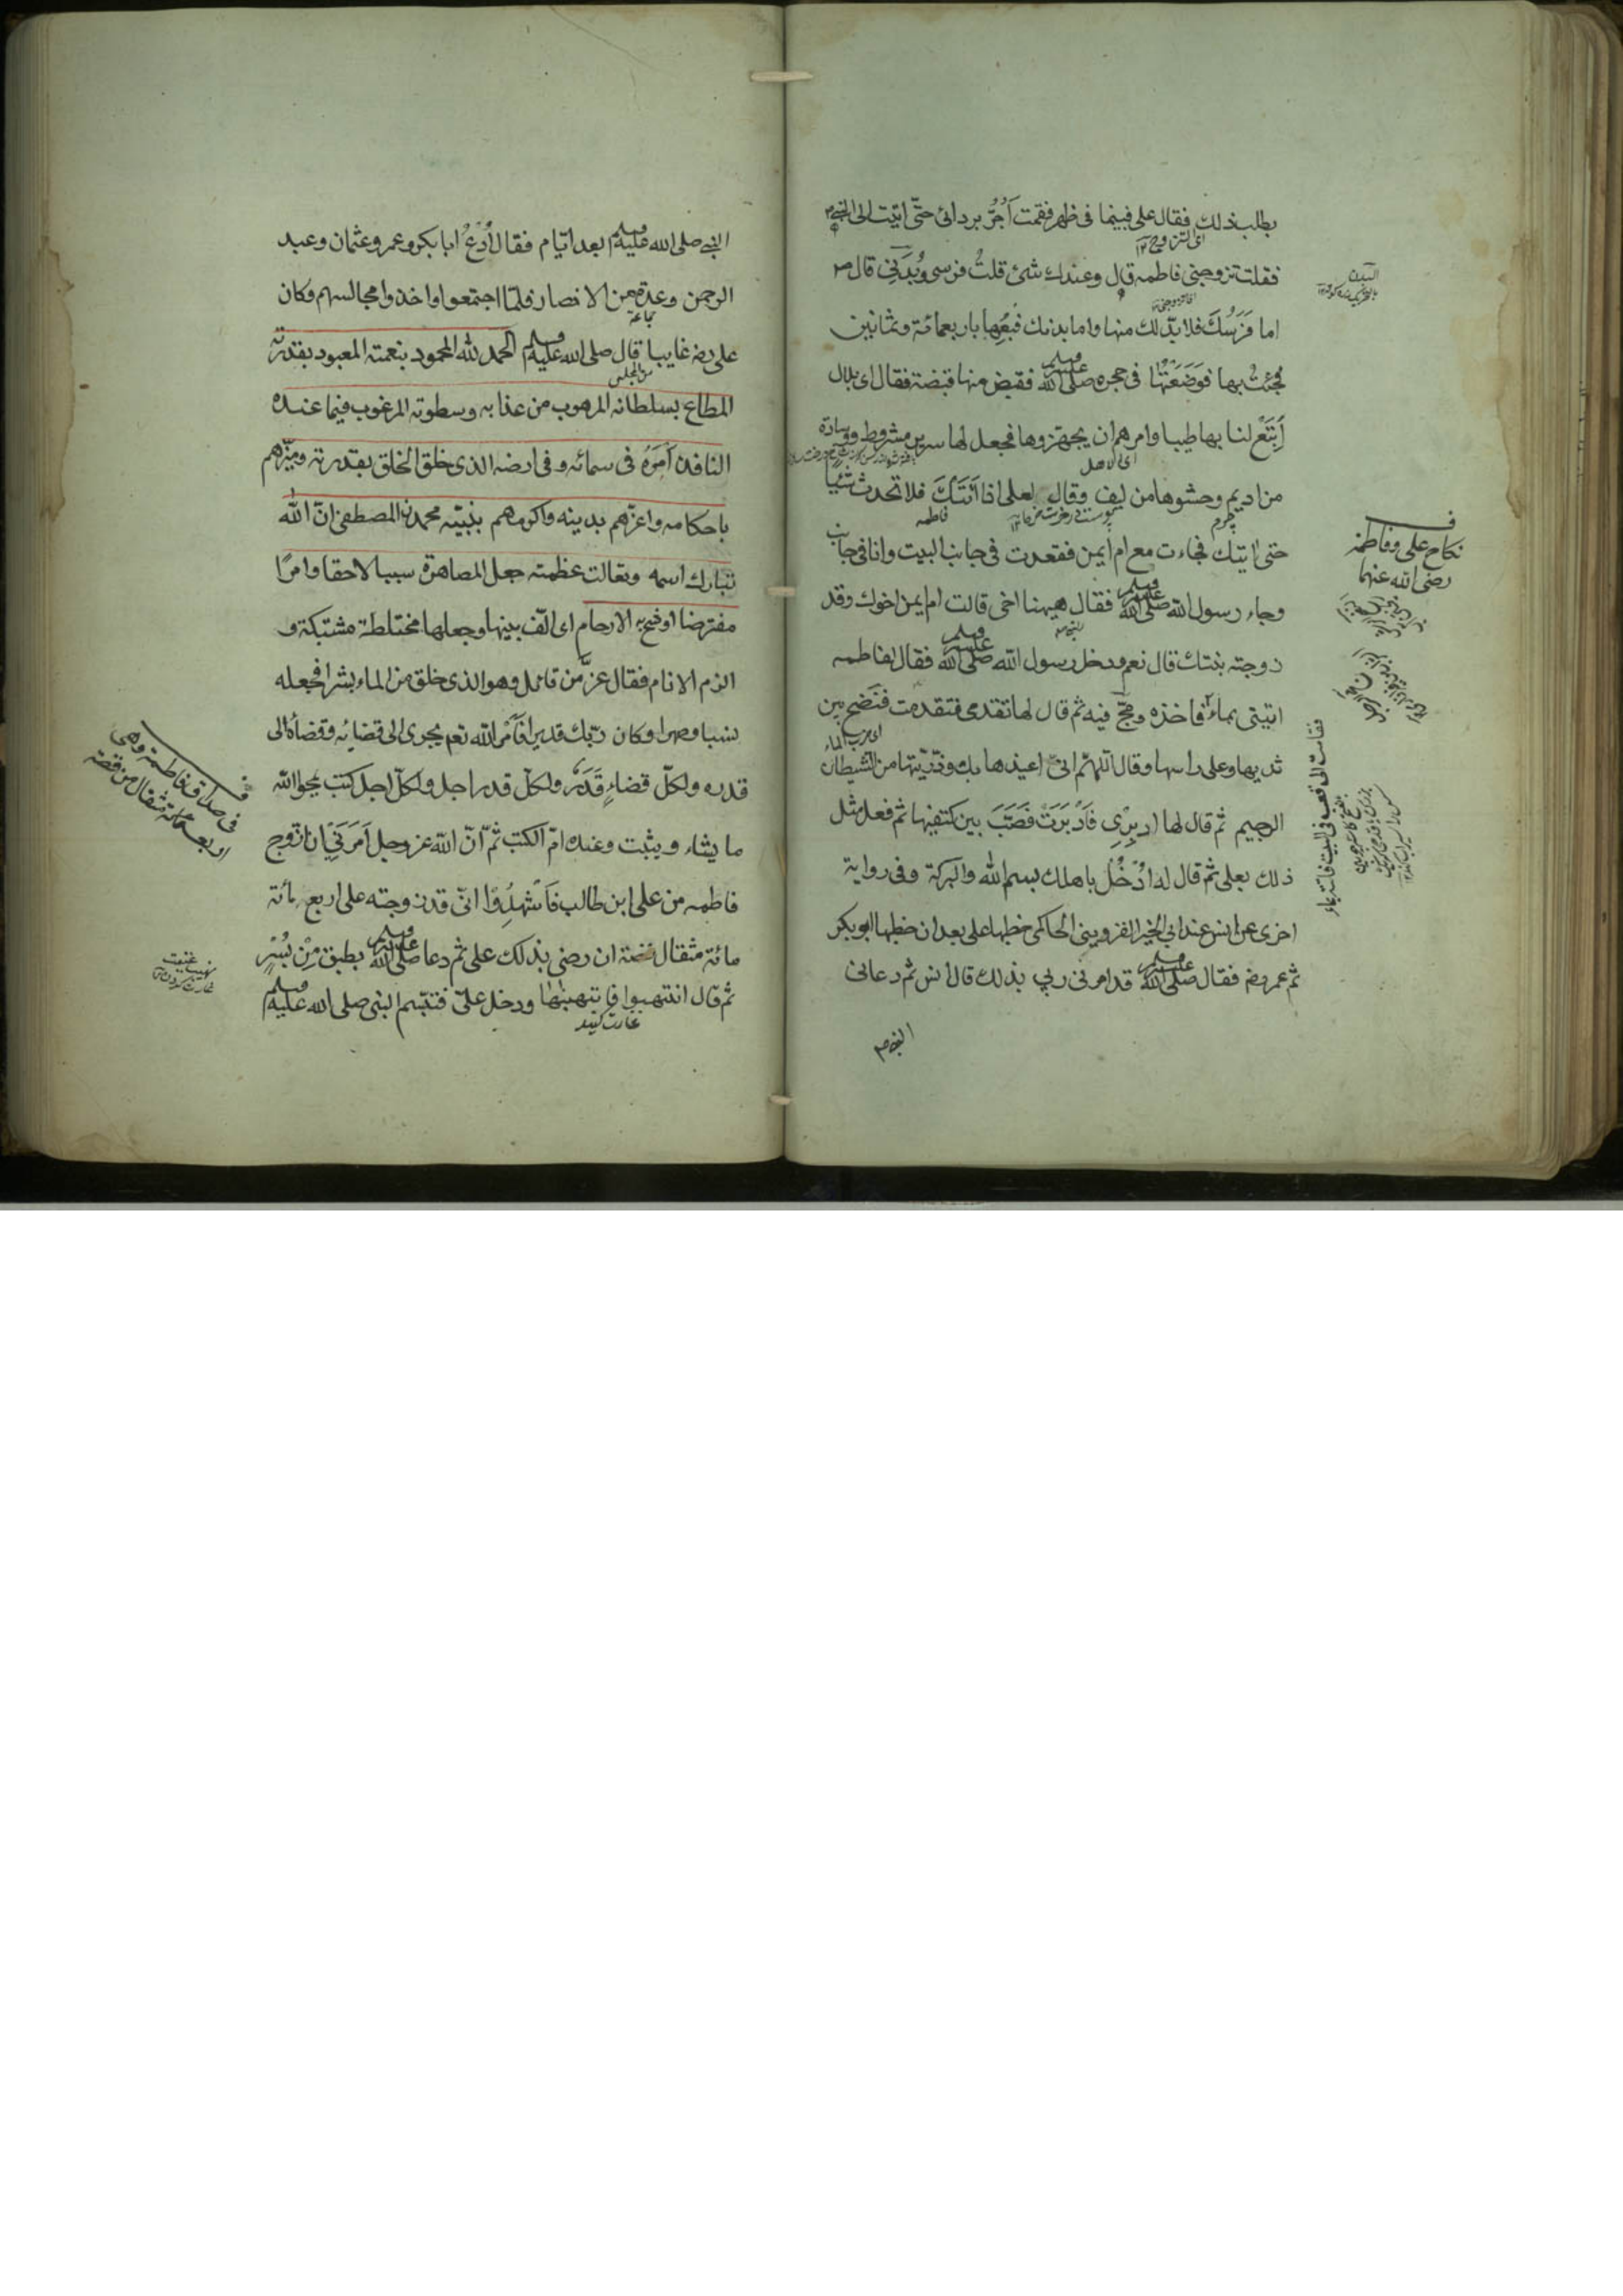 بطلب ذلك فقال علي فبينما في ظهر فقمت اَجُرُّ بردائي حتّى اتيت الى النبي
اى التزاوج ١٢
فقلت تزوجني فاطمه قال وعندك شئ قلتُ فرسي وبُدَني قال
اما فَرَسُكَ فلا بدّ لك منها واما بدنك فبعْها باربعمائة وثمانين
فجئتُ بها فوَضَعْتُها في حجره صلى الله عليه وسلم فقبض منها قبضة فقال اى بلال
اَبْتَعْ لنا بها طيبا وامرهم ان يجهّزوها فجعل لها سرير مشروط ووسادة
من اديم وحشوها من ليف وقال لعلى اذا اَتَتْكَ فلا تحدث شيًا
چرم
فاطمه
حتى اتيتك فجاءت مع ام ايمن فقعدت في جانب البيت وانا في جانب
وجاء رسول الله صلى الله عليه وسلم فقال ههنا اخى قالت ام ايمن اخوك وقد
زوجته بنتك قال نعم ودخل رسول الله صلى الله عليه وسلم فقال لفاطمه
ايتيني بماء فاخذه ومجّ فيه ثم قال لها تقدمى فتقدمت فنَضح بين
ثدييها وعلى راسها وقال اللّهمّ انى اعيذها بك وذرّيتها من الشيطان
الرجيم ثم قال لها ادبِرِى فاَدْبَرَتْ فَصَبَّ بين كتفيها ثم فعل مثل
ذلك بعلى ثم قال له ادْخُلْ باهلك بسم الله والبركة وفى رواية
اخرى عن انس عند ابى الخير القزوينى الحاكمى خطبها على بعد ان خطبها ابو بكر
ثم عمر رضـ فقال صلى الله عليه وسلم قد امرنى ربي بذلك قال انس ثم دعانى
النبى صـ
نكاح على وفاطمة
رضى الله عنهما
فقامت الى قعب فى البيت فاتت بماء
النبي صلى الله عليه وسلم بعد ايّام فقال اُدْعُ ابا بكر وعمر وعثمان وعبد
الرحمن وعدة من الانصار فلمّا اجتمعوا واخذوا مجالسهم وكان
جماعة
على رضـ غايبا قال صلى الله عليه وسلم الحمد لله المحمود بنعمته المعبود بقدرته
من المجلس
المطاع بسلطانه المرهوب من عذابه وسطوته المرغوب فيما عنده
النافذ اَمرُهُ فى سمائه وفى ارضه الذى خلق الخلق بقدرته وميّزهم
باحكامه واعزّهم بدينه واكرمهم بنبيّه محمد المصطفى انّ الله
تبارك اسمه وتعالت عظمته جعل المصاهرة سببا لاحقا وامرًا
مفترضا اوشج به الارحام اى الّف بينها وجعلها مختلطة مشتبكة و
الزم الانام فقال عزّ من قائل وهو الذى خلق من الماء بشرا فجعله
نسبا وصهرا وكان ربّك قديرا فاَمْر الله نعم يجرى الى قضائه وقضاؤه الى
قدره ولكلّ قضاءٍ قَدَرٌ ولكلّ قدر اجل ولكلّ اجل كتب يمحو الله
ما يشاء ويثبت وعنده امّ الكتب ثمّ انّ الله عز وجل اَمَرَني ان ازّوج
فاطمه من على ابن طالب فاَشْهِدُوا انّى قد زوجته على اربع مائة
مائة مثقال فضة ان رضى بذلك على ثم دعا صلى الله عليه وسلم بطبق مِنْ بُسْرٍ
ثم قال انتهبوا فانتهبناها ودخل علىّ فتبسّم النبى صلى الله عليه وسلم
غارت كنيد
فى صداق فاطمة وهى
اربعمائة مثقال من فضة